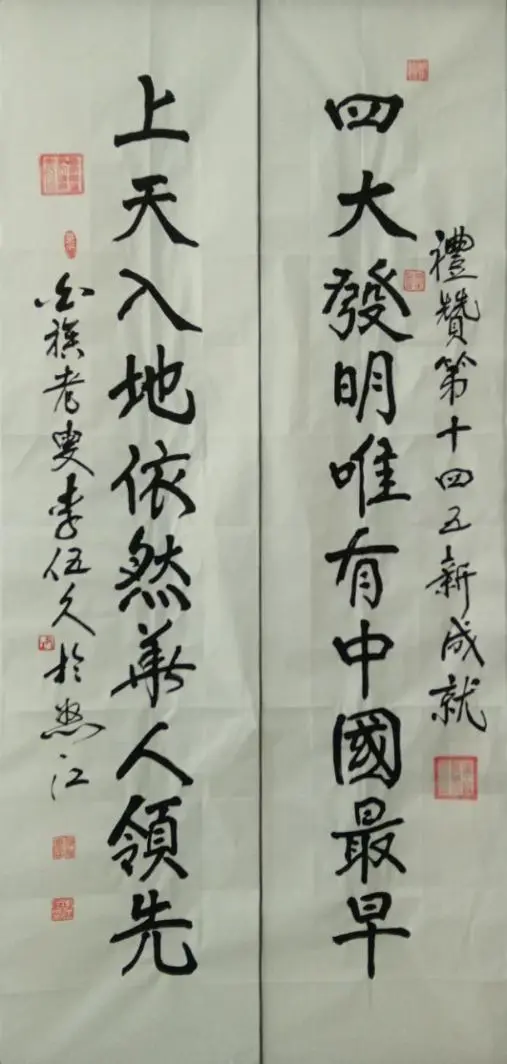 禮贊第十四五新成就
四大發明唯有中國最早
上天入地依然華人領先
白族老叟李伍久於怒江